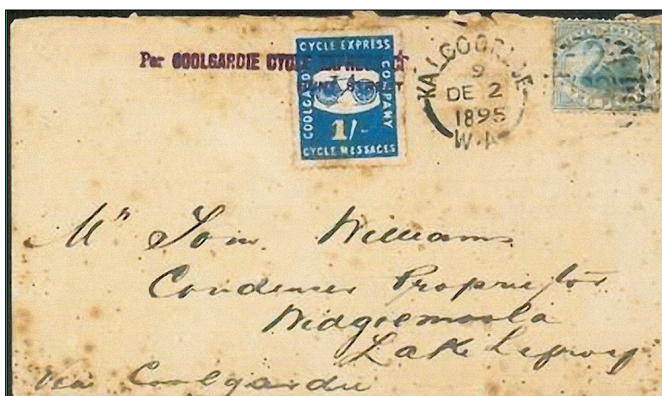 Per COOLGARDIE CYCLE EXPRESS Cº
CYCLE EXPRESS
COOLGARDIE
COMPANY
1/-
CYCLE MESSAGES
KALGOORLIE
9
DE 2
1895
W.A
Mr Tom Williams
Condenser Proprietor
Widgiemoola
Lake Lefroy
Via Coolgardie